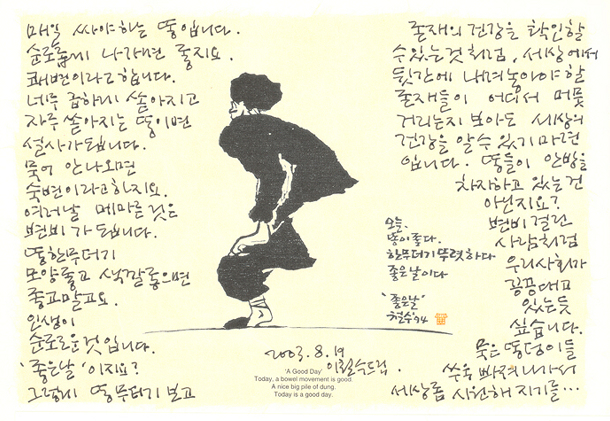 매일 싸야 하는 똥입니다.
순조롭게 나와주면 좋지요.
쾌변이라고 합니다.
너무 급하게 쏟아지고
자주 쏟아지는 똥이면
설사가 됩니다.
묵어 안 나오면
숙변이라고 하지요.
여러날 메마른 것은
변비가 됩니다.
똥 한 무더기
모양 좋고 색깔 좋으면
좋고 말고요.
인생이
순조로운 것입니다.
'좋은 날'이지요?
그렇게 똥무더기 보고
존재의 건강을 확인할
수 있는 것처럼, 세상에서
뒷간에 내려놓아야 할
존재들이 어디서 머뭇
거리는지 보아도 세상의
건강을 알 수 있기 마련
입니다. 똥들이 안방을
차지하고 있는 건
아닌지요?
변비 걸린
사람처럼
우리 사회가
끙끙대고
있는 듯
싶습니다.
묵은 똥덩이들
쑤욱 빠져나가서
세상 좀 시원해지기를…
오늘.
똥이 좋다.
한무더기 뚜렷하다
좋은 날이다
'좋은 날'
철수 '94
2003. 8. 19
이철수 드림.
'A Good Day'
Today, a bowel movement is good.
A nice big pile of dung.
Today is a good day.